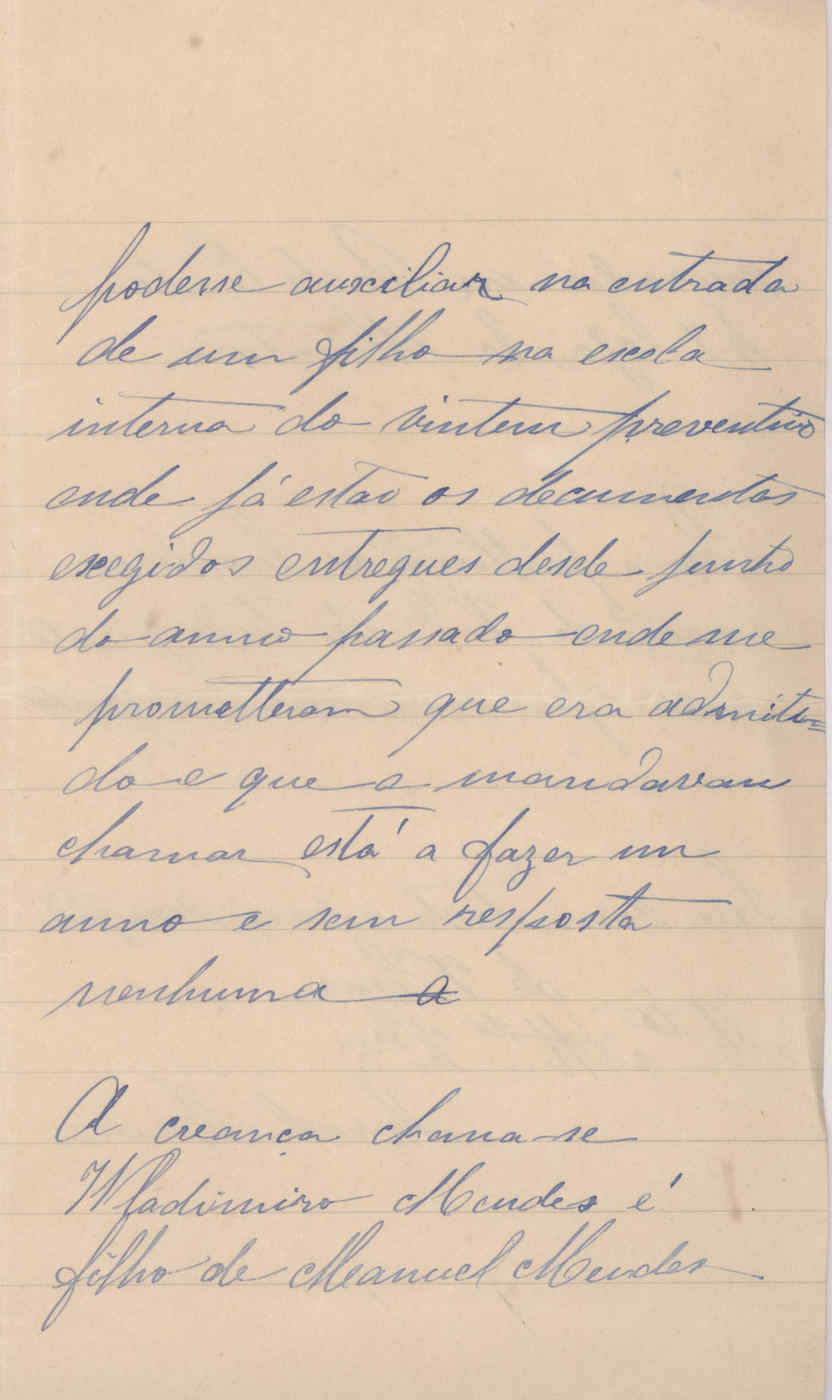 podesse auxiliar na entrada
de um filho na escola
interna do vintem preventivo
onde já estao os documentos
exegidos entregues desde junho
do anno passado onde me
prometteram que era admiti=
do e que o mandavam
chamar está a fazer um
anno e sem resposta
nenhuma a

A creança chama-se
Wladimiro Mendes é
filho de Manuel Mendes